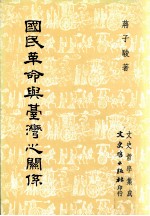 蔣子駿著
國民革命與臺灣之關係
文史哲學集成
文史哲出版社印行